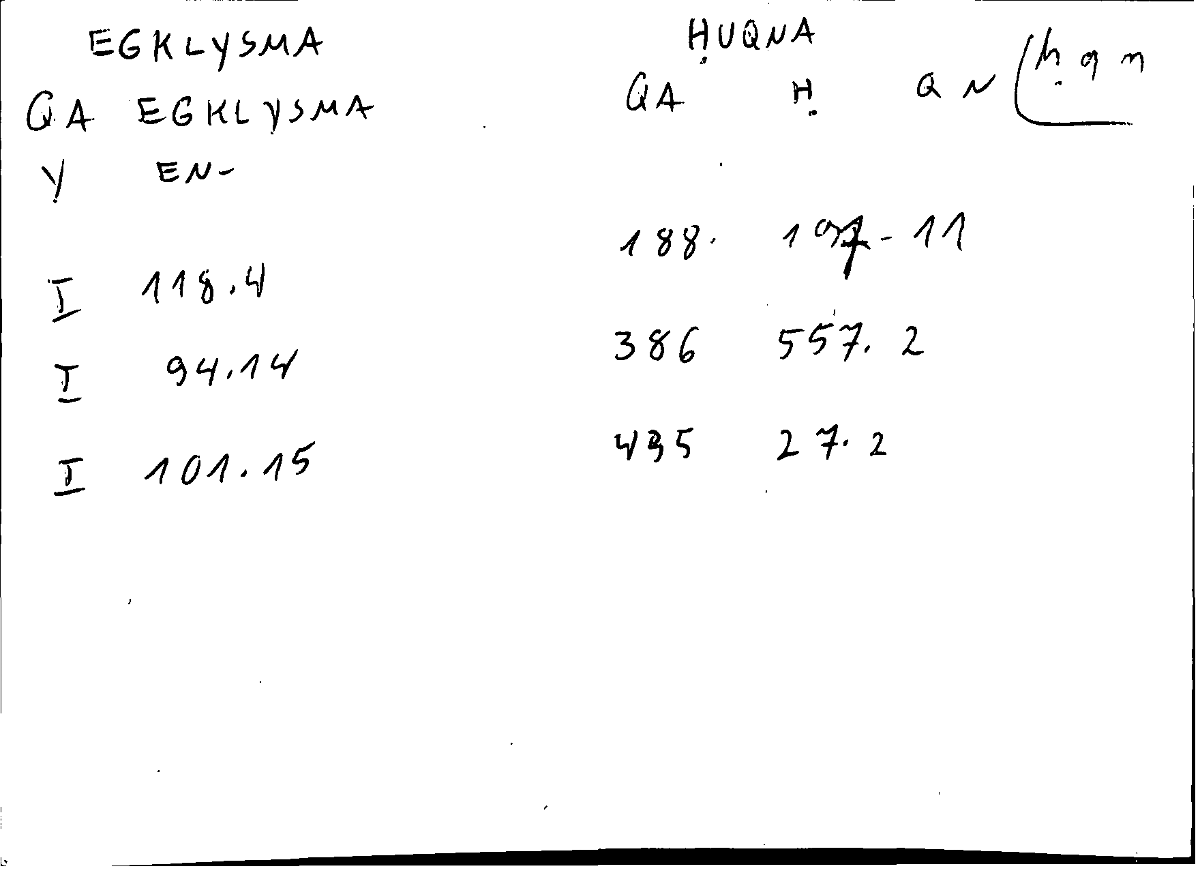 EGKLYSMA
QA EGKLYSMA
Y EN-
I 118.4
I 94.14
I 101.15
ḤUQNA
QA Ḥ QN (ḥ q n
188. 197-11
386 557.2
495 27.2